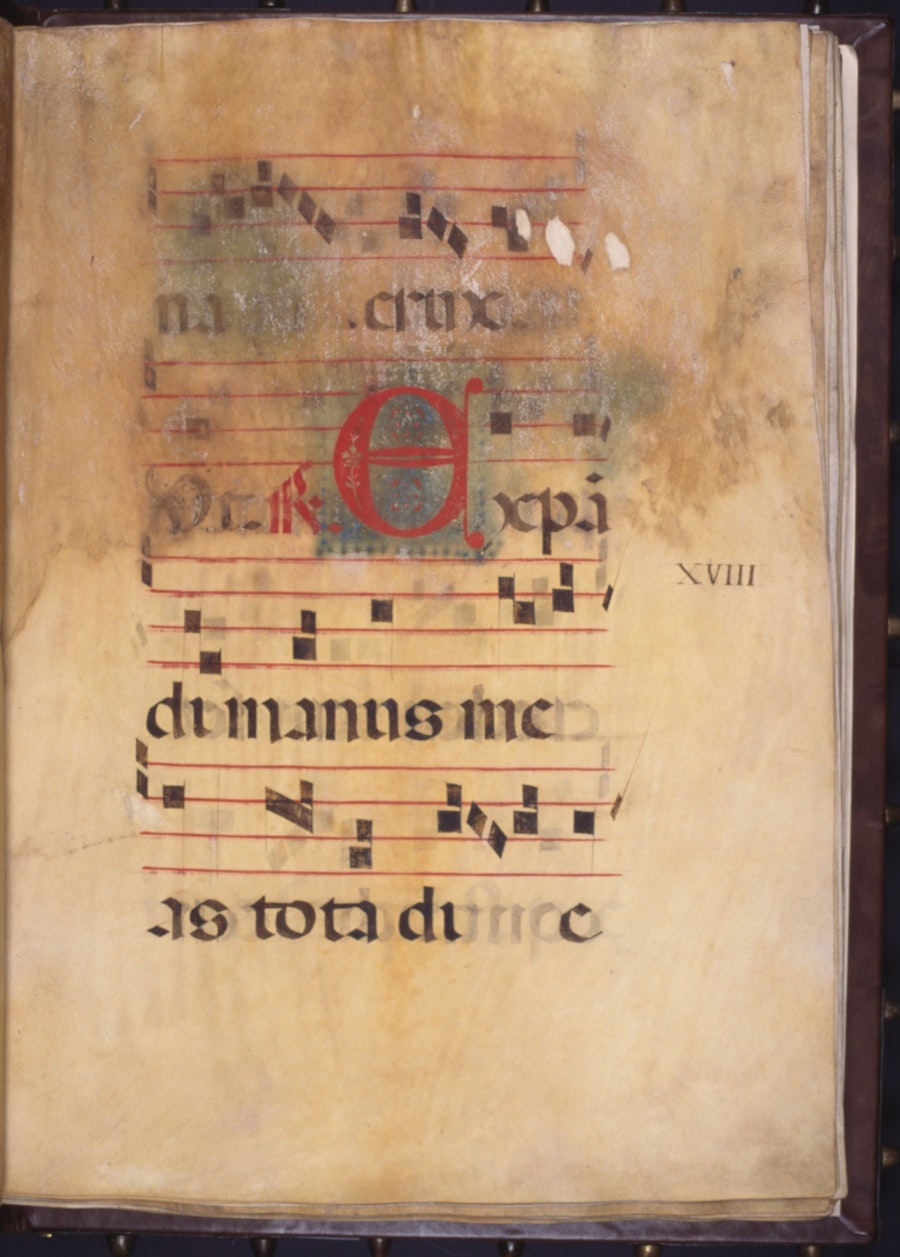 na .crux
℟. Expã
XVIII
di manus me
as tota di e